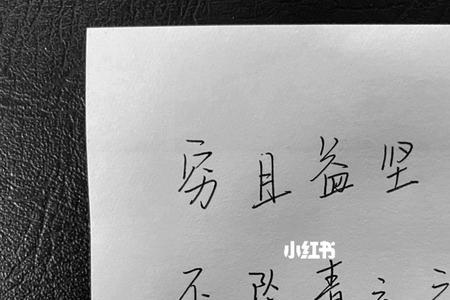 穷且益坚
小红书
不坠青云之